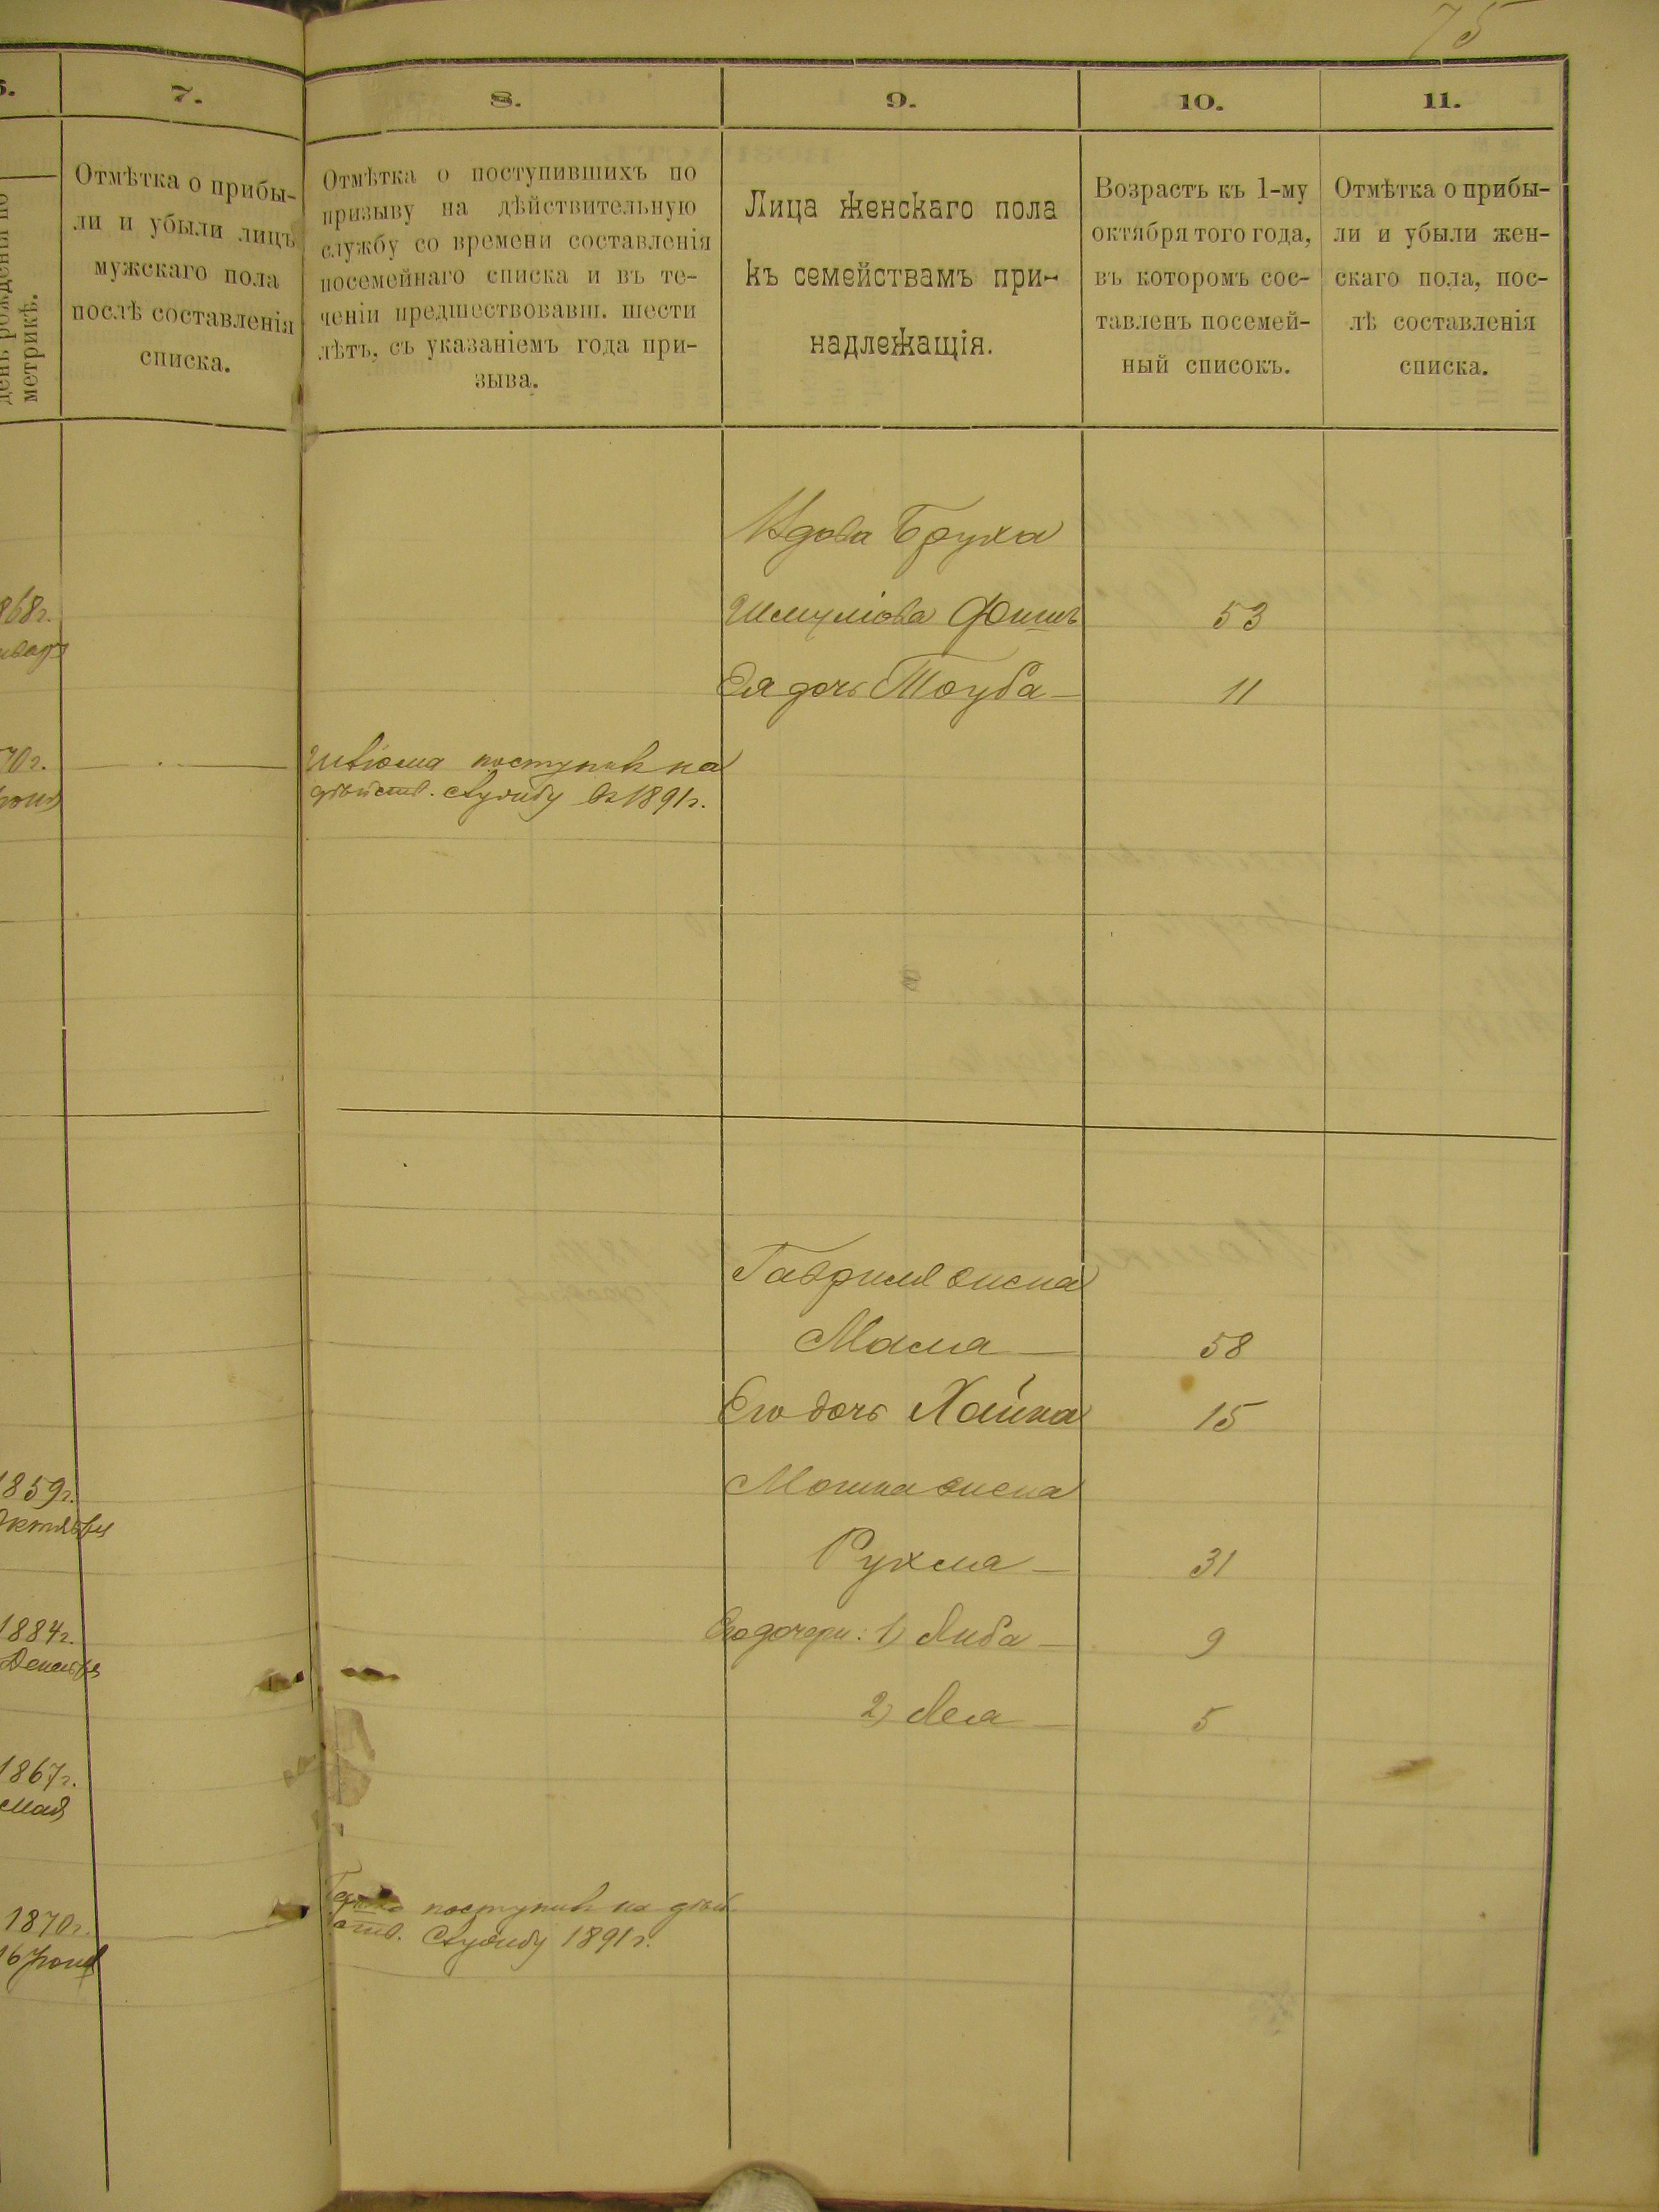 75
7.
8.
9.
10.
11.
день рожденія по
метрикѣ.
Отмѣтка о прибы-
ли и убыли лицъ
мужскаго пола
послѣ составленія
списка.
Отмѣтка о поступившихъ по
призыву на дѣйствительную
службу со времени составленія
посемейнаго списка и въ те-
ченіи предшествовавш. шести
лѣтъ, съ указаніемъ года при-
зыва.
Лица женскаго пола
къ семействамъ при-
надлежащія.
Возрастъ къ 1-му
октября того года,
въ которомъ сос-
тавленъ посемей-
ный списокъ.
Отмѣтка о прибы-
ли и убыли жен-
скаго пола, пос-
лѣ составленія
списка.
Вдова Бруха
868г.
Шмуліова Фишъ 53
Ея дочь Тоуба 11
70г.
поступилъ на
дѣйств. службу въ 1891г.
Гавриля жена
Мася 58
Его дочь Хайка 15
1859г.
Мошка жена
Октября
Рухля 31
1884г.
Его дочери: 1) Либа 9
Декабря
2) Лея 5
1867г.
Мая
1870г.
поступилъ на дѣй-
ств. службу 1891г.
16 Іюня